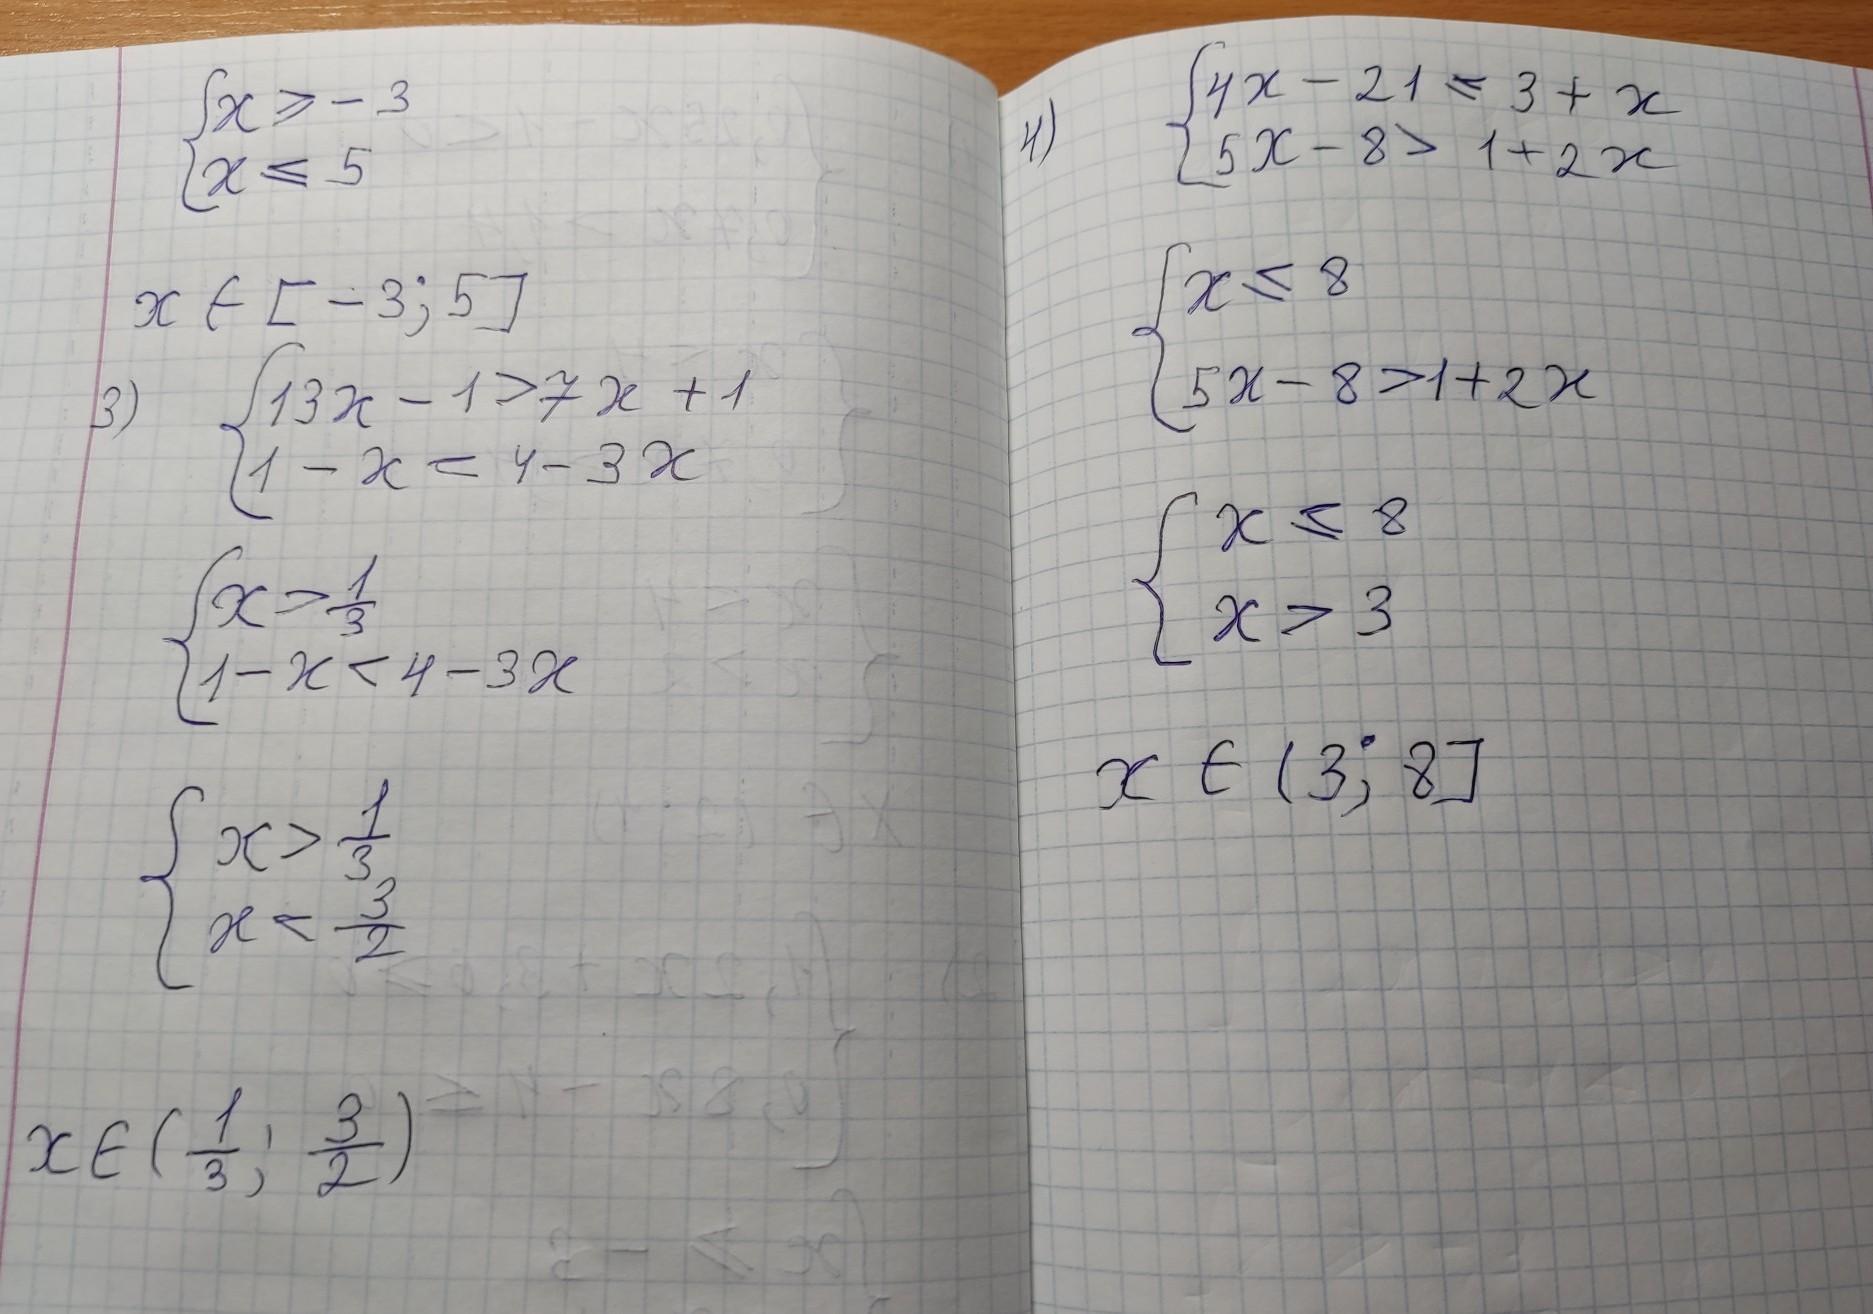 {x ⩾ -3
{x ⩽ 5
x ∈ [-3; 5]
3) {13x - 1 > 7x + 1
{1 - x < 4 - 3x
{x > 1/3
{1 - x < 4 - 3x
{x > 1/3
{x < 3/2
x ∈ (1/3; 3/2)
4) {4x - 21 ⩽ 3 + x
{5x - 8 > 1 + 2x
{x ⩽ 8
{5x - 8 > 1 + 2x
{x ⩽ 8
{x > 3
x ∈ (3; 8]